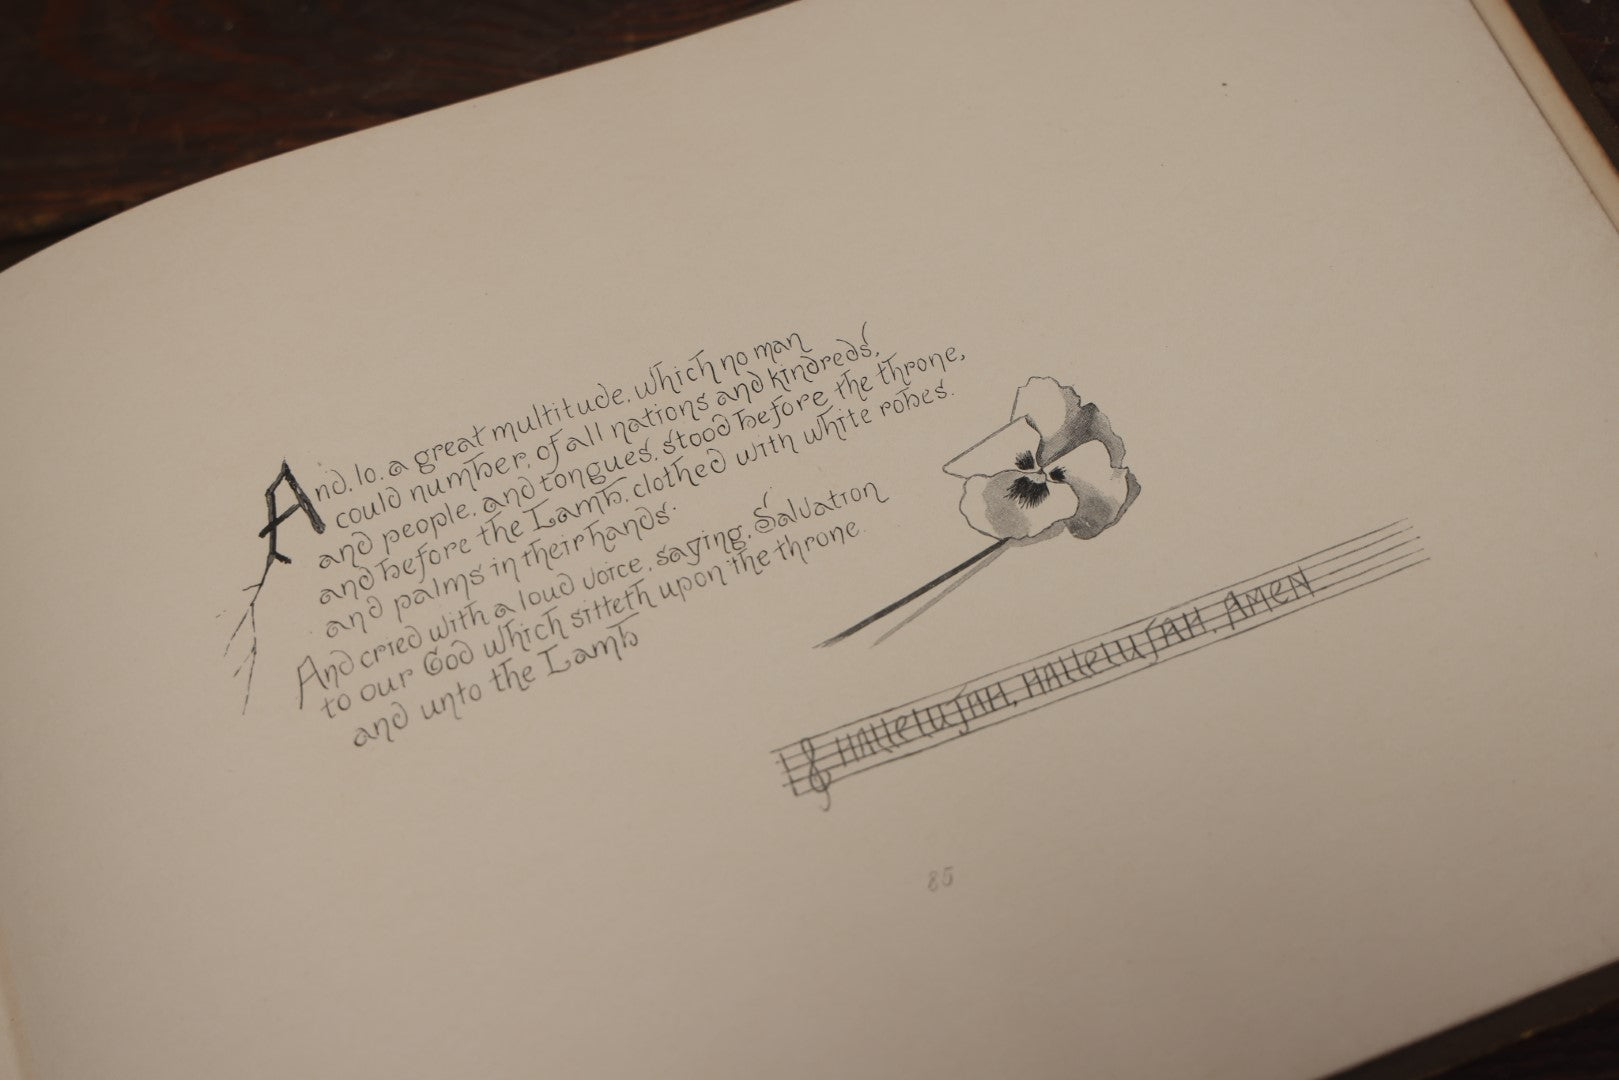 And, lo, a great multitude, which no man
could number, of all nations and kindreds,
and people, and tongues, stood before the throne,
and before the Lamb, clothed with white robes,
and palms in their hands.
And cried with a loud voice, saying, Salvation
to our God which sitteth upon the throne,
and unto the Lamb
HAllelujAH, HAllelujAH, AMEN
85